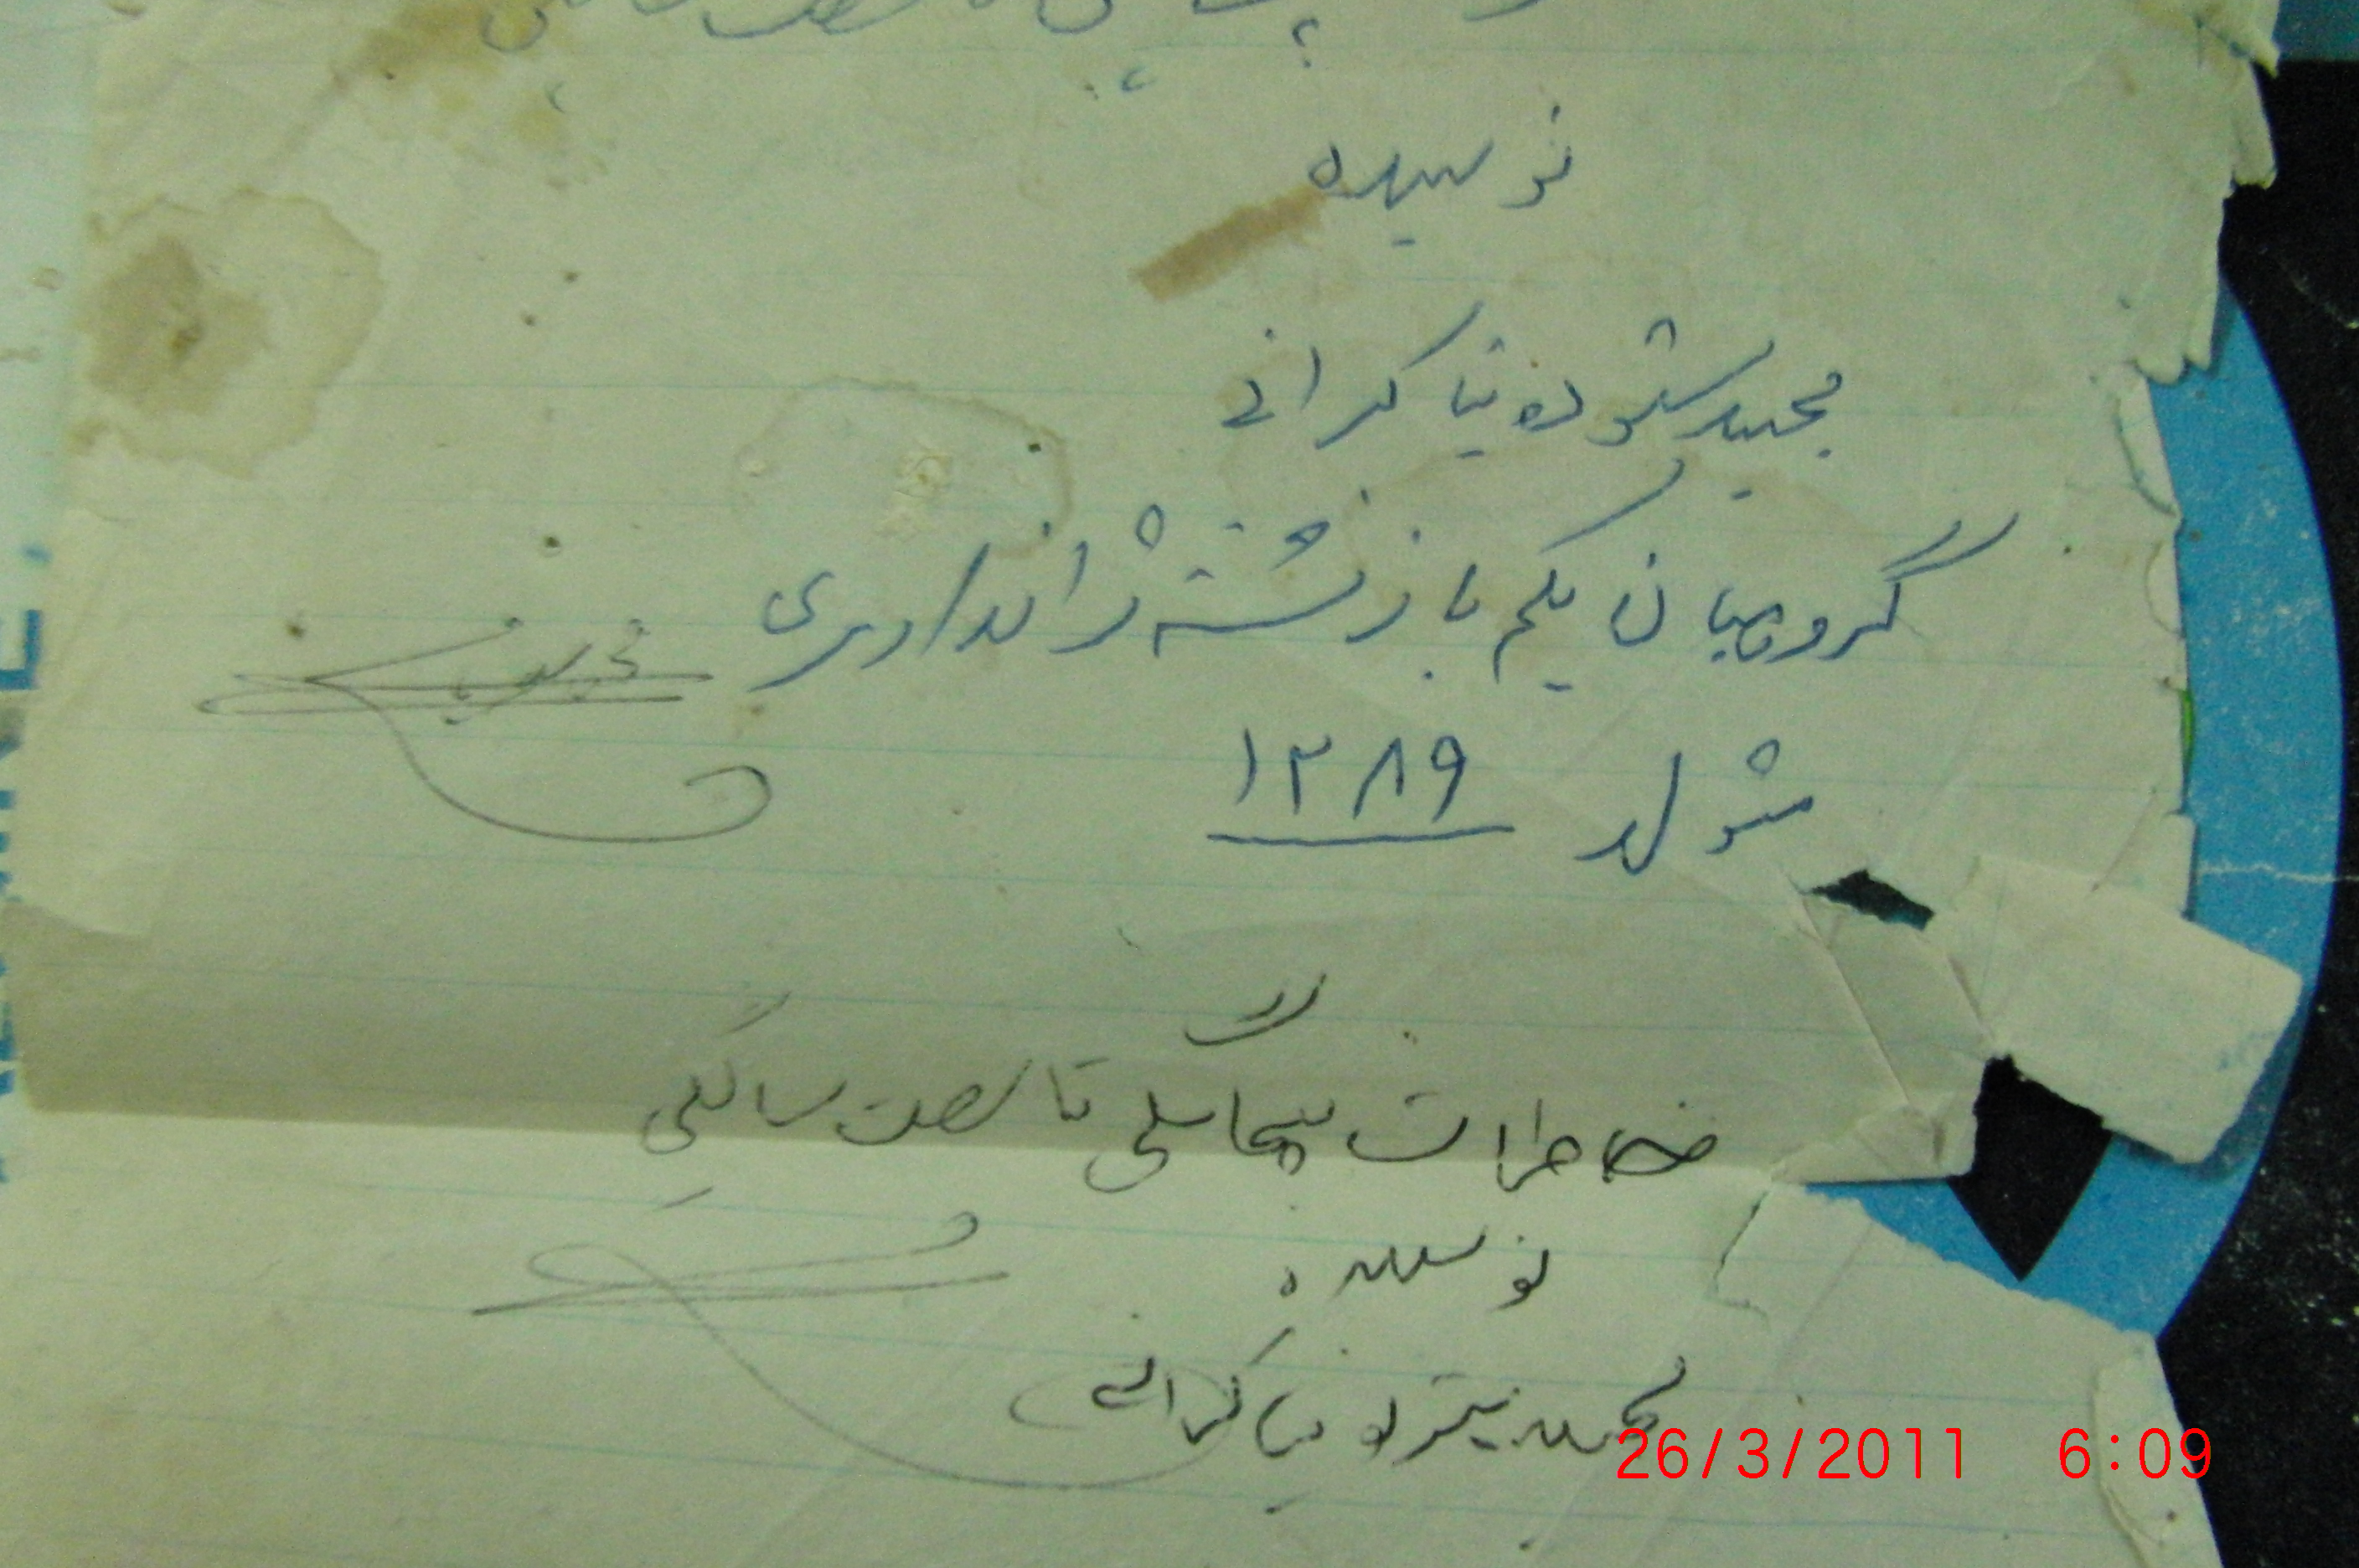 نویسنده
مجید ستوده نیا کرانی
گروهبان یکم بازنشسته ژاندارمری
متولد ۱۲۸۹
خاطرات پنجاسگی تا شصت سالگی
نویسنده
مجید ستوده نیا کرانی
26/3/2011 6:09